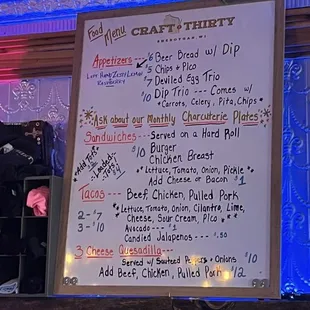 Food Menu
CRAFT THIRTY
Appetizers
$6 Beer Bread w/ Dip
$5 Chips & Pico
$7 Deviled Egg Trio
$10 Dip Trio --- Comes w/
*Carrots, Celery, Pita, Chips*
*Ask about our Monthly Charcuterie Plates*
Sandwiches --- Served on a Hard Roll
$10 Burger
Chicken Breast
*Lettuce, Tomato, Onion, Pickle*
Add Cheese or Bacon $1
*Add Tots*
Loaded
Tacos --- Beef, Chicken, Pulled Pork
2 - $7
3 - $10
*Lettuce, Tomato, Onion, Cilantro, Lime,
Cheese, Sour Cream, Pico
Avocado --- $1
Candied Jalapenos --- $.50
3 Cheese Quesadilla ---
Served w/ Sauteed Peppers & Onions $10
Add Beef, Chicken, Pulled Pork $12